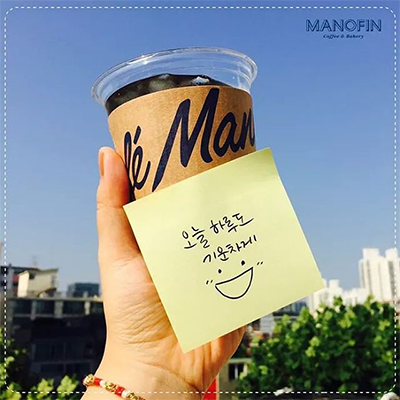 MANOFIN
Coffee & Bakery
fé Man
오늘 하루도
기운차게